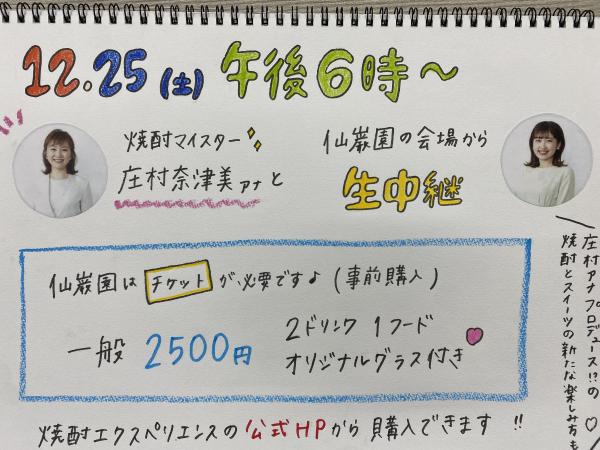 12.25(土) 午後6時～
焼酎マイスター
庄村奈津美アナと
仙巌園の会場から
生中継
仙巌園はチケットが必要です♪(事前購入)
一般 2500円
2ドリンク 1フード
オリジナルグラス付き
焼酎エクスペリエンスの公式HPから購入できます!!
庄村アナプロデュース!?の
焼酎とスイーツの新たな楽しみ方も